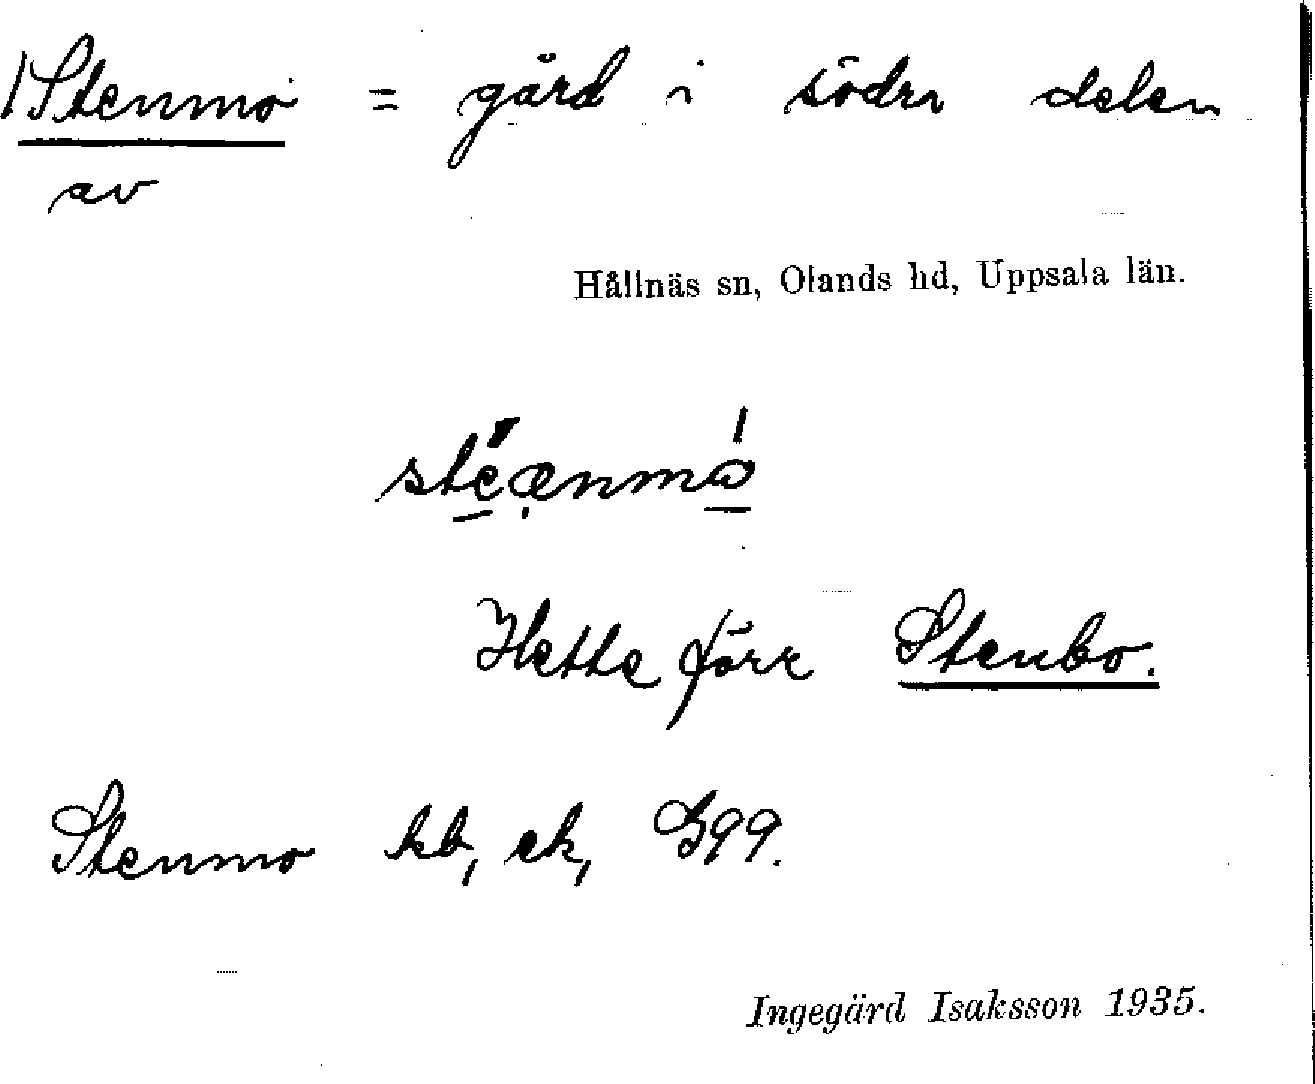 Stenmo = gård i södra delen
av
Hållnäs sn, Olands hd, Uppsala län.
Hette förr Stenbo.
Stenmo kb, ek, G99.
Ingegärd Isaksson 1935.